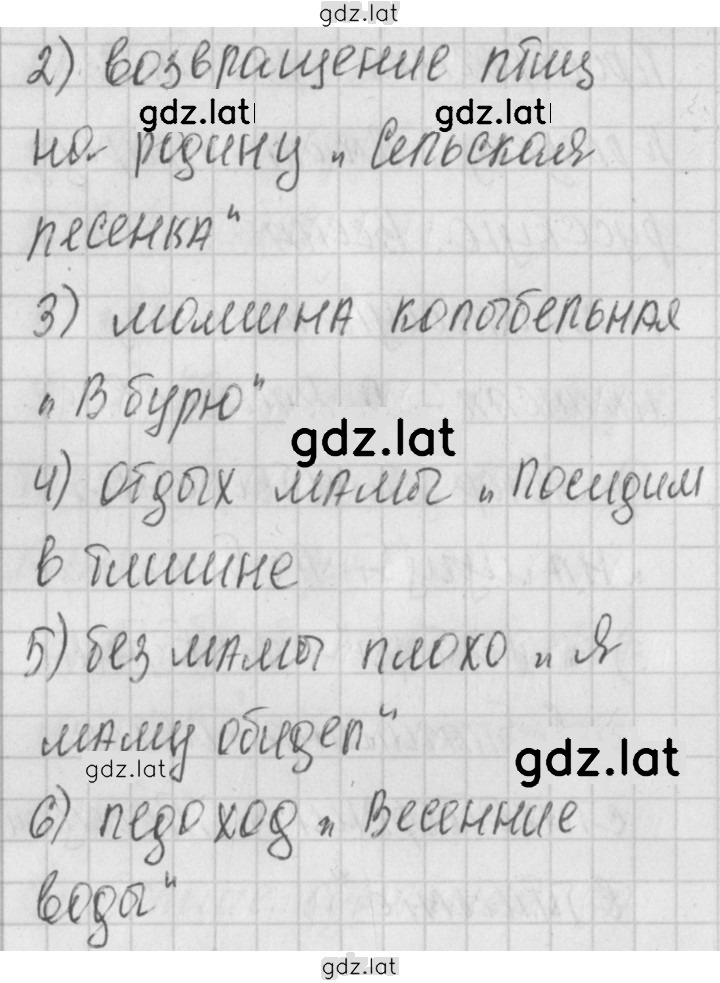 gdz.lat
2) возвращение птиц
gdz.lat gdz.lat
на родину „Сельская
песенка“
3) мамина колыбельная
„В бурю“
gdz.lat
4) отдых мамы „Посидим
в тишине
5) без мамы плохо „Я
маму обидел“
gdz.lat
gdz.lat
6) ледоход „Весенние
воды“
gdz.lat